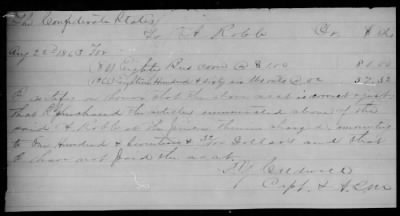 The Confederate States
To A Robb Dr $ cts
Aug 22d 1863 For
80 Eighty Bus corn @ $1.00 80.00
1866 Eighteen Hundred & sixty six @ .02 37.32
I certify on honor that the above acct is correct & just
that I purchased the articles enumerated above of the
said A Robb at the prices therein charged, amounting
to One Hundred & Seventeen & Dollars and that
I have not paid the acct.
Capt & A.Q.M